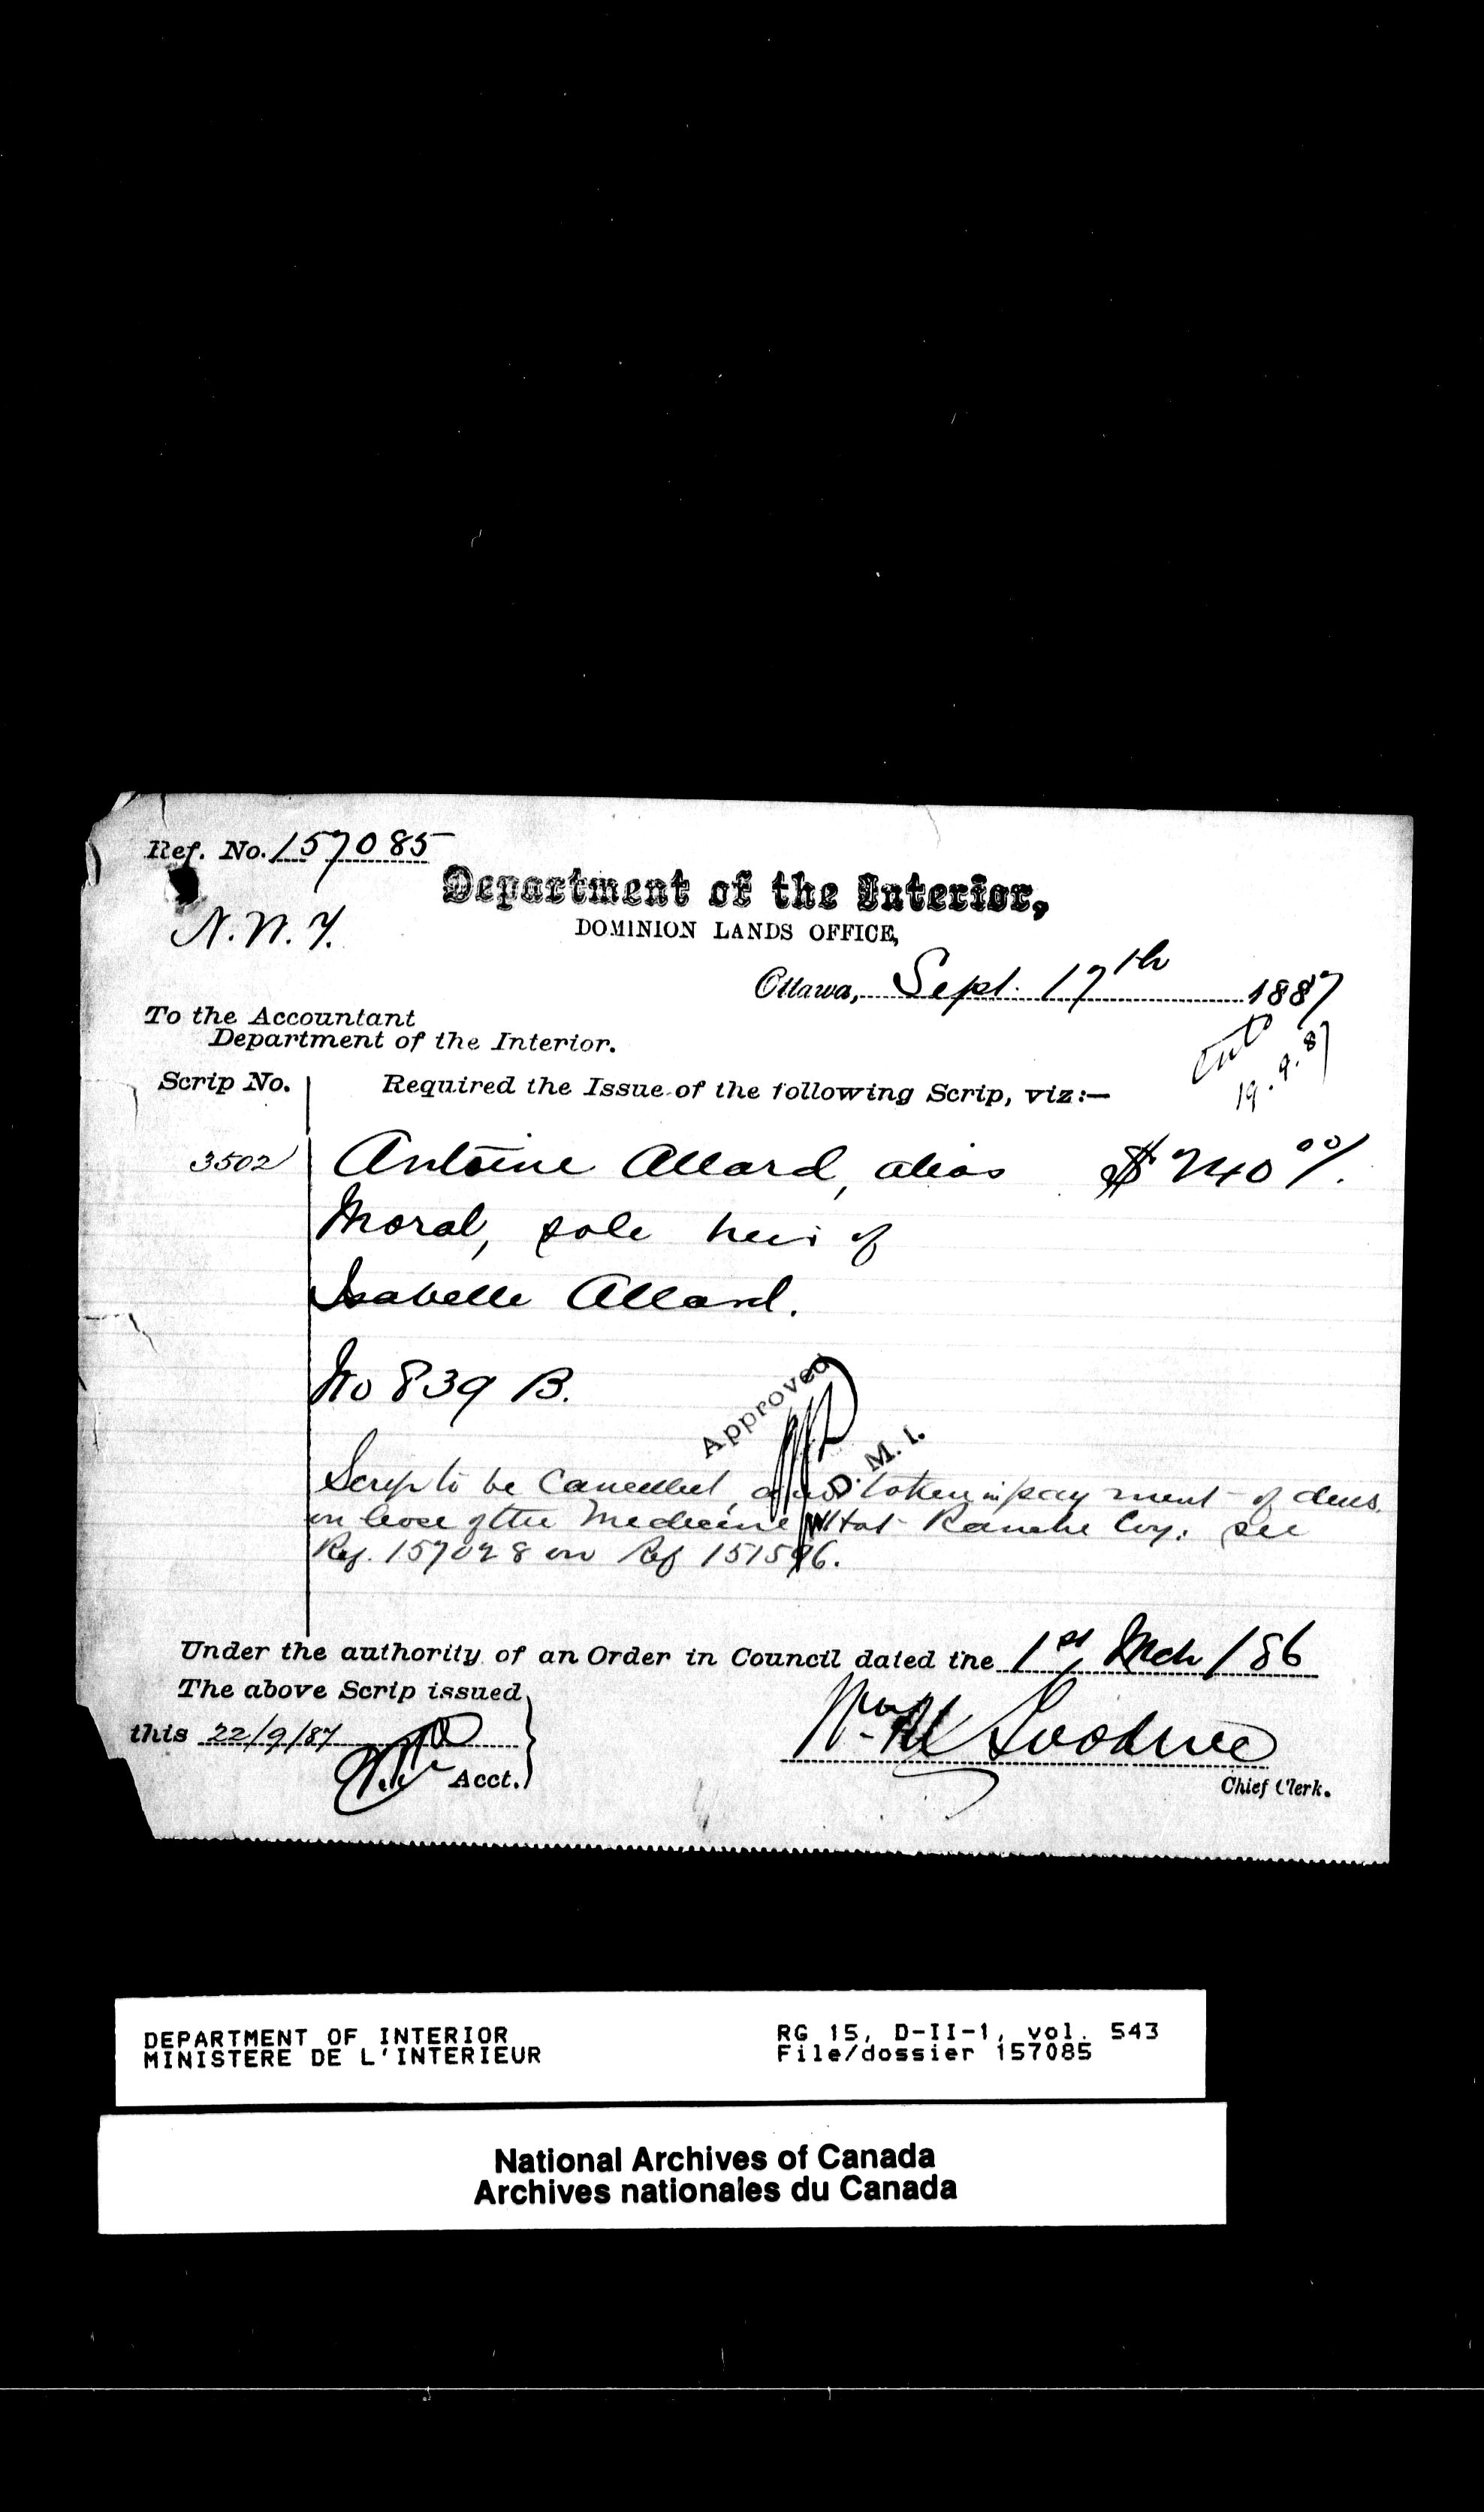 Ref. No. 157085
N. W. T.
Department of the Interior,
DOMINION LANDS OFFICE,
Ottawa, Sept. 17th 1887
To the Accountant
Department of the Interior.
19.9.87
Scrip No. Required the Issue of the following Scrip, viz:—
3502 Antoine Allard, alias $240 00/
Moral, sole heir of
Isabelle Allard.
No 839 B.
Approved
D. M. I.
Scrip to be Cancelled, and taken in payment of dues
on lease of the Medicine Hat Ranche Coy. see
Ref. 157028 on Ref 151596.
Under the authority of an Order in Council dated the 1st Mch /86
The above Scrip issued
this 22/9/87
Acct.
Chief Clerk.
DEPARTMENT OF INTERIOR
MINISTERE DE L'INTERIEUR
RG 15, D-II-1, vol. 543
File/dossier 157085
National Archives of Canada
Archives nationales du Canada